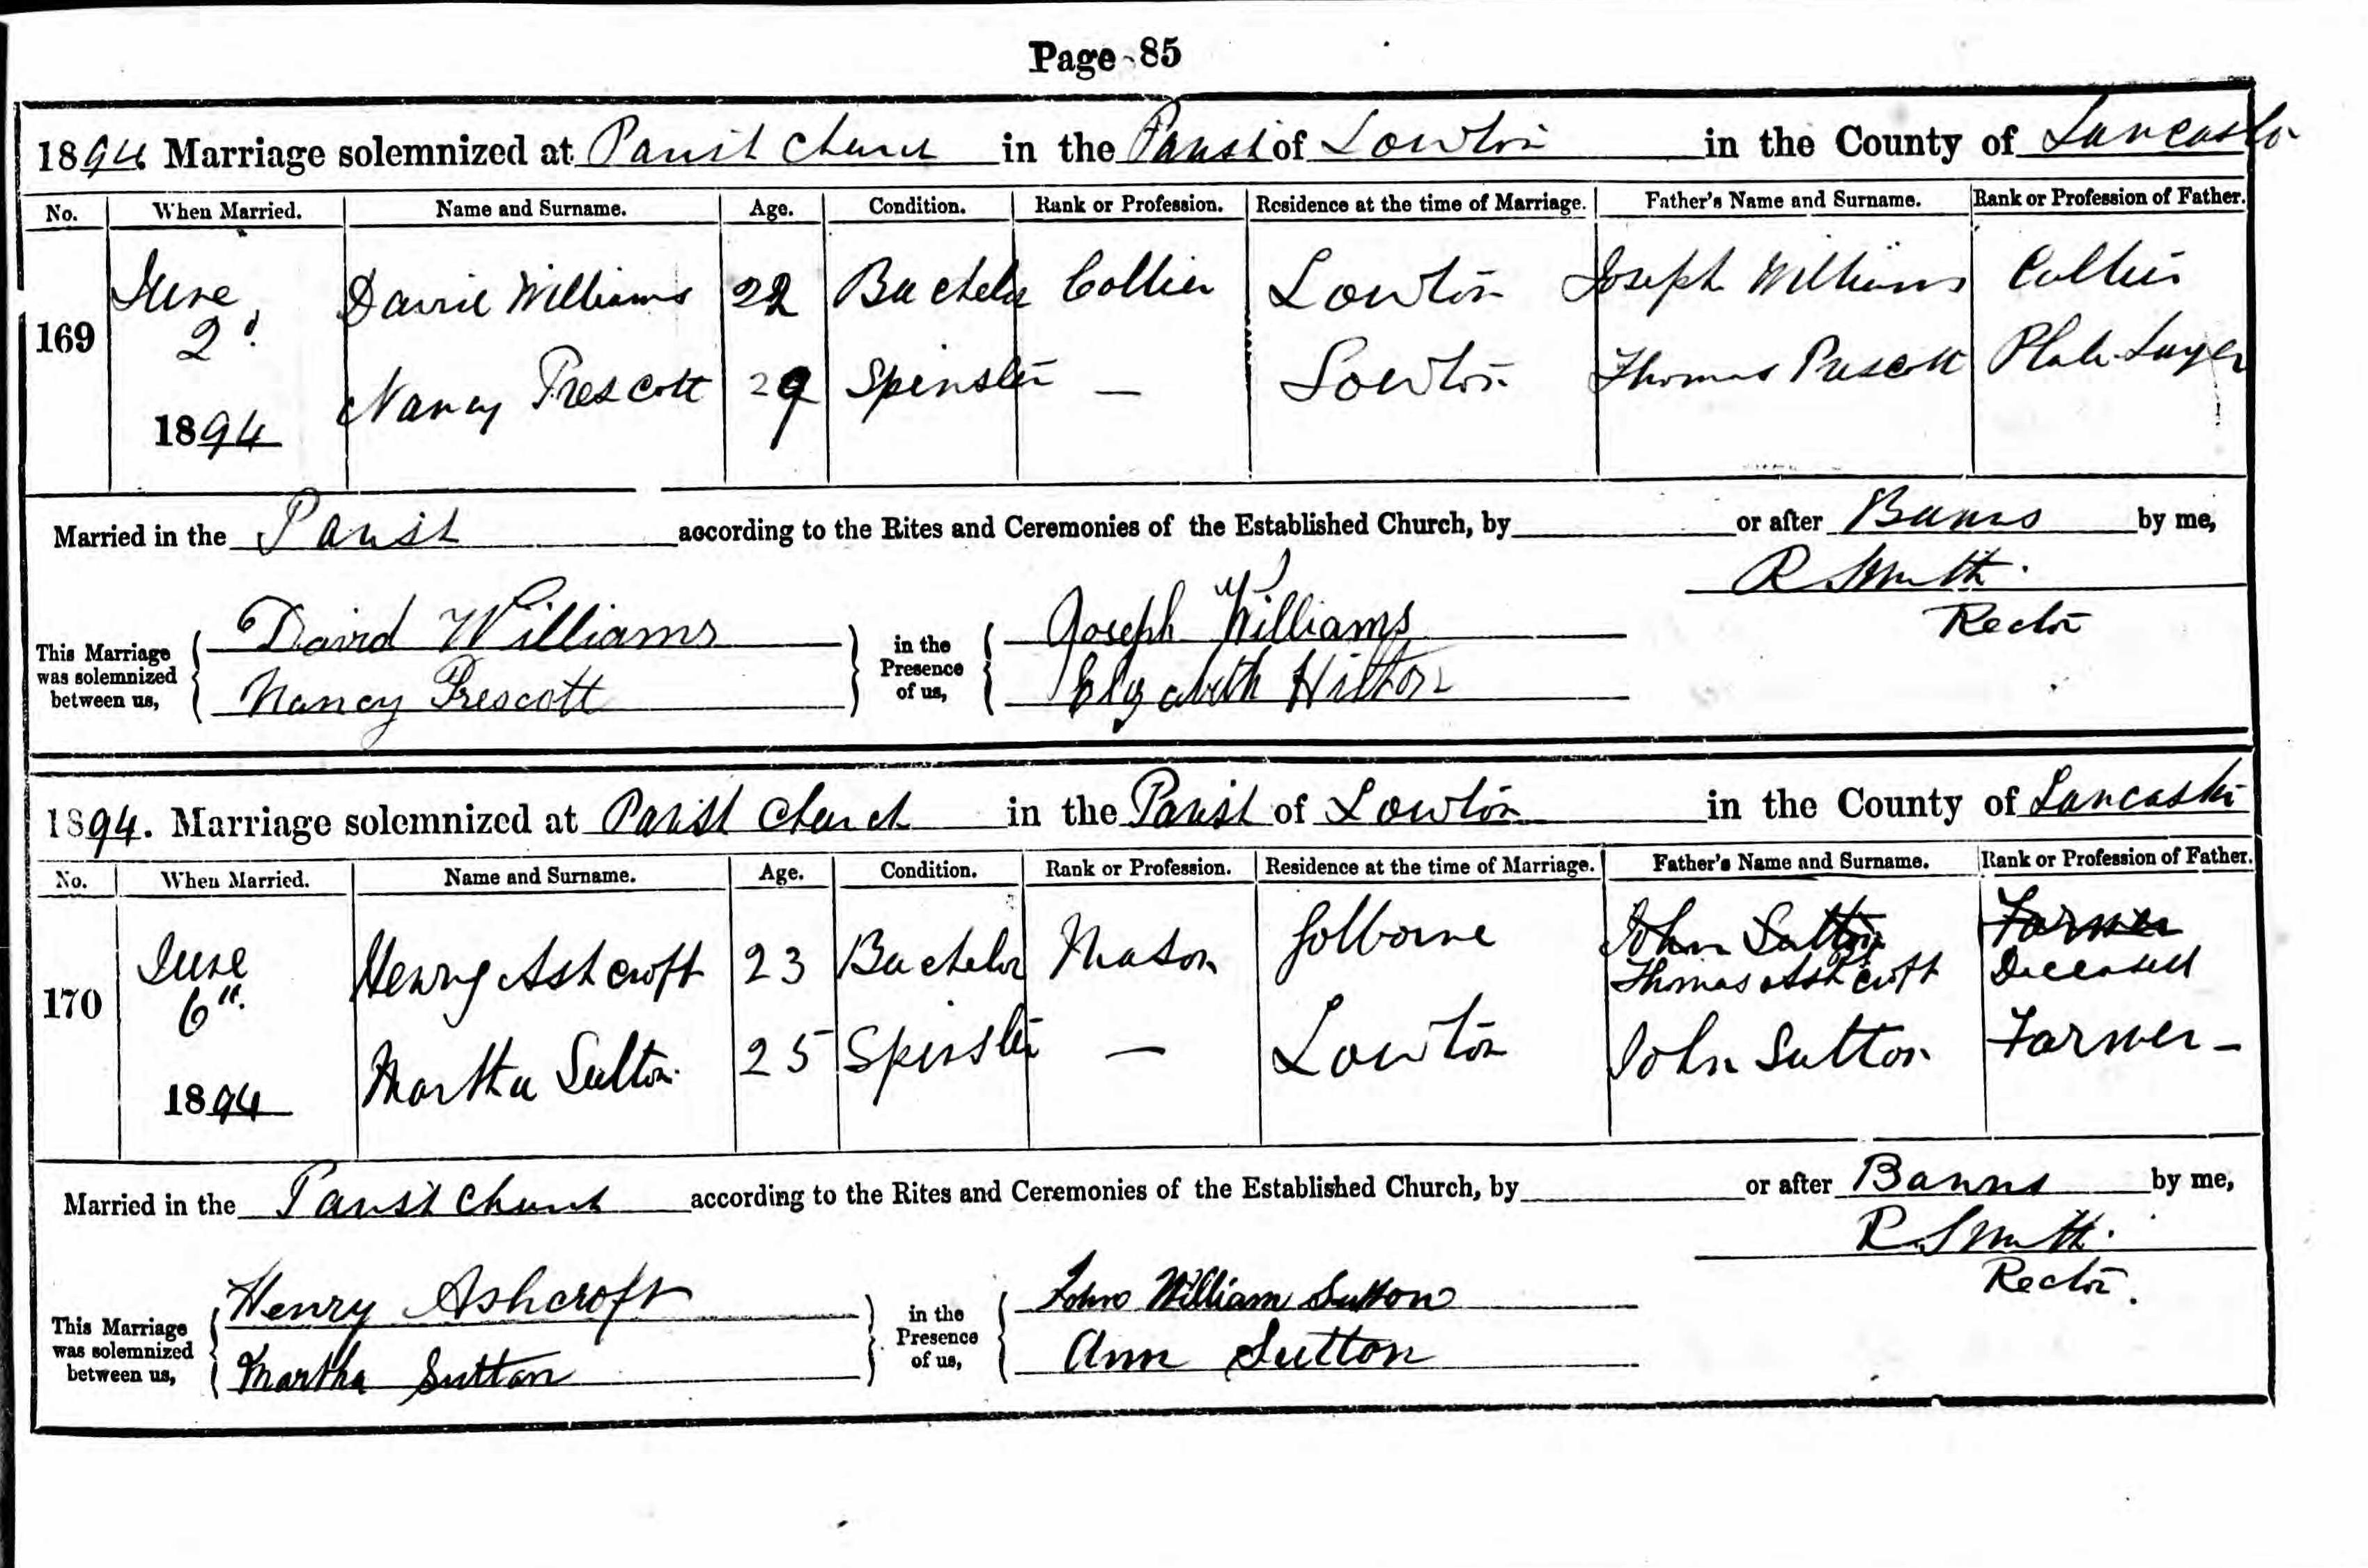 Page 85
1894 Marriage solemnized at Parish Church in the Parish of Lowton in the County of Lancaster
No. When Married. Name and Surname. Age. Condition. Rank or Profession. Residence at the time of Marriage. Father's Name and Surname. Rank or Profession of Father.
169 June 2d 1894 David Williams 22 Bachelor Collier Lowton Joseph Williams Collier
Nancy Prescott 29 Spinster — Lowton Thomas Prescott Plate Layer
Married in the Parish according to the Rites and Ceremonies of the Established Church, by or after Banns by me,
R Smith.
Rector
This Marriage was solemnized between us, David Williams in the Presence of us, Joseph Williams
Nancy Prescott Elizabeth Hilton
1894. Marriage solemnized at Parish Church in the Parish of Lowton in the County of Lancaster
No. When Married. Name and Surname. Age. Condition. Rank or Profession. Residence at the time of Marriage. Father's Name and Surname. Rank or Profession of Father.
170 June 6th 1894 Henry Ashcroft 23 Bachelor Mason Golborne John Sutton Farmer
Thomas Ashcroft Deceased
Martha Sutton 25 Spinster — Lowton John Sutton Farmer —
Married in the Parish Church according to the Rites and Ceremonies of the Established Church, by or after Banns by me,
R. Smith.
Rector.
This Marriage was solemnized between us, Henry Ashcroft in the Presence of us, John William Sutton
Martha Sutton Ann Sutton